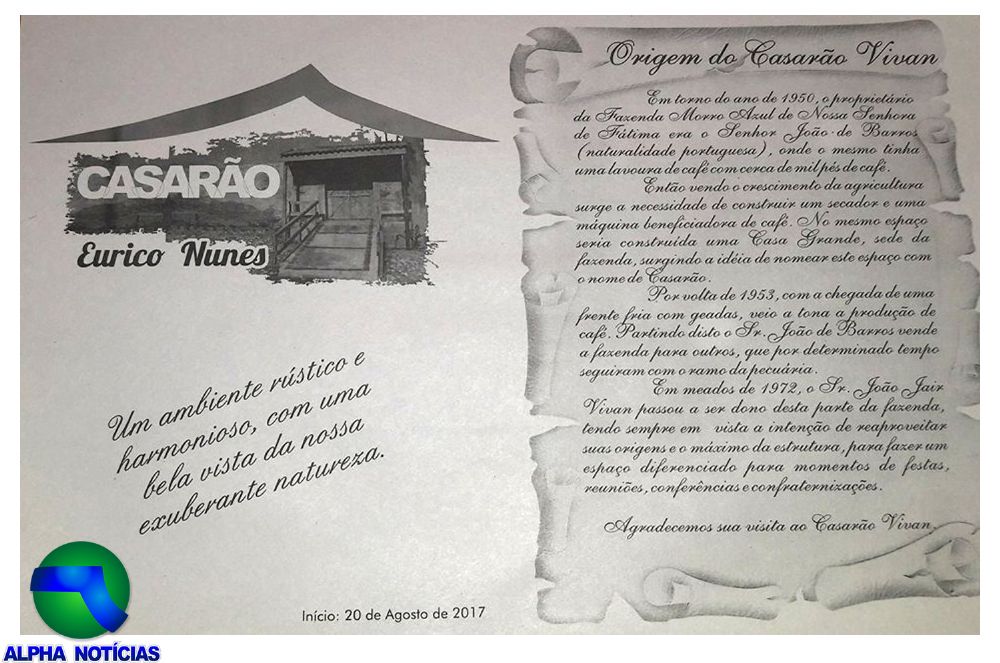 CASARÃO
Eurico Nunes
Um ambiente rústico e
harmonioso, com uma
bela vista da nossa
exuberante natureza.
Início: 20 de Agosto de 2017
Origem do Casarão Vivan
Em torno do ano de 1950, o proprietário
da Fazenda Morro Azul de Nossa Senhora
de Fátima era o Senhor João de Barros
(naturalidade portuguesa), onde o mesmo tinha
uma lavoura de café com cerca de mil pés de café.
Então vendo o crescimento da agricultura
surge a necessidade de construir um secador e uma
máquina beneficiadora de café. No mesmo espaço
seria construída uma Casa Grande, sede da
fazenda, surgindo a idéia de nomear este espaço com
o nome de Casarão.
Por volta de 1953, com a chegada de uma
frente fria com geadas, veio a tona a produção de
café. Partindo disto o Sr. João de Barros vende
a fazenda para outros, que por determinado tempo
seguiram com o ramo da pecuária.
Em meados de 1972, o Sr. João Jair
Vivan passou a ser dono desta parte da fazenda,
tendo sempre em vista a intenção de reaproveitar
suas origens e o máximo da estrutura, para fazer um
espaço diferenciado para momentos de festas,
reuniões, conferências e confraternizações.
Agradecemos sua visita ao Casarão Vivan.
ALPHA NOTÍCIAS